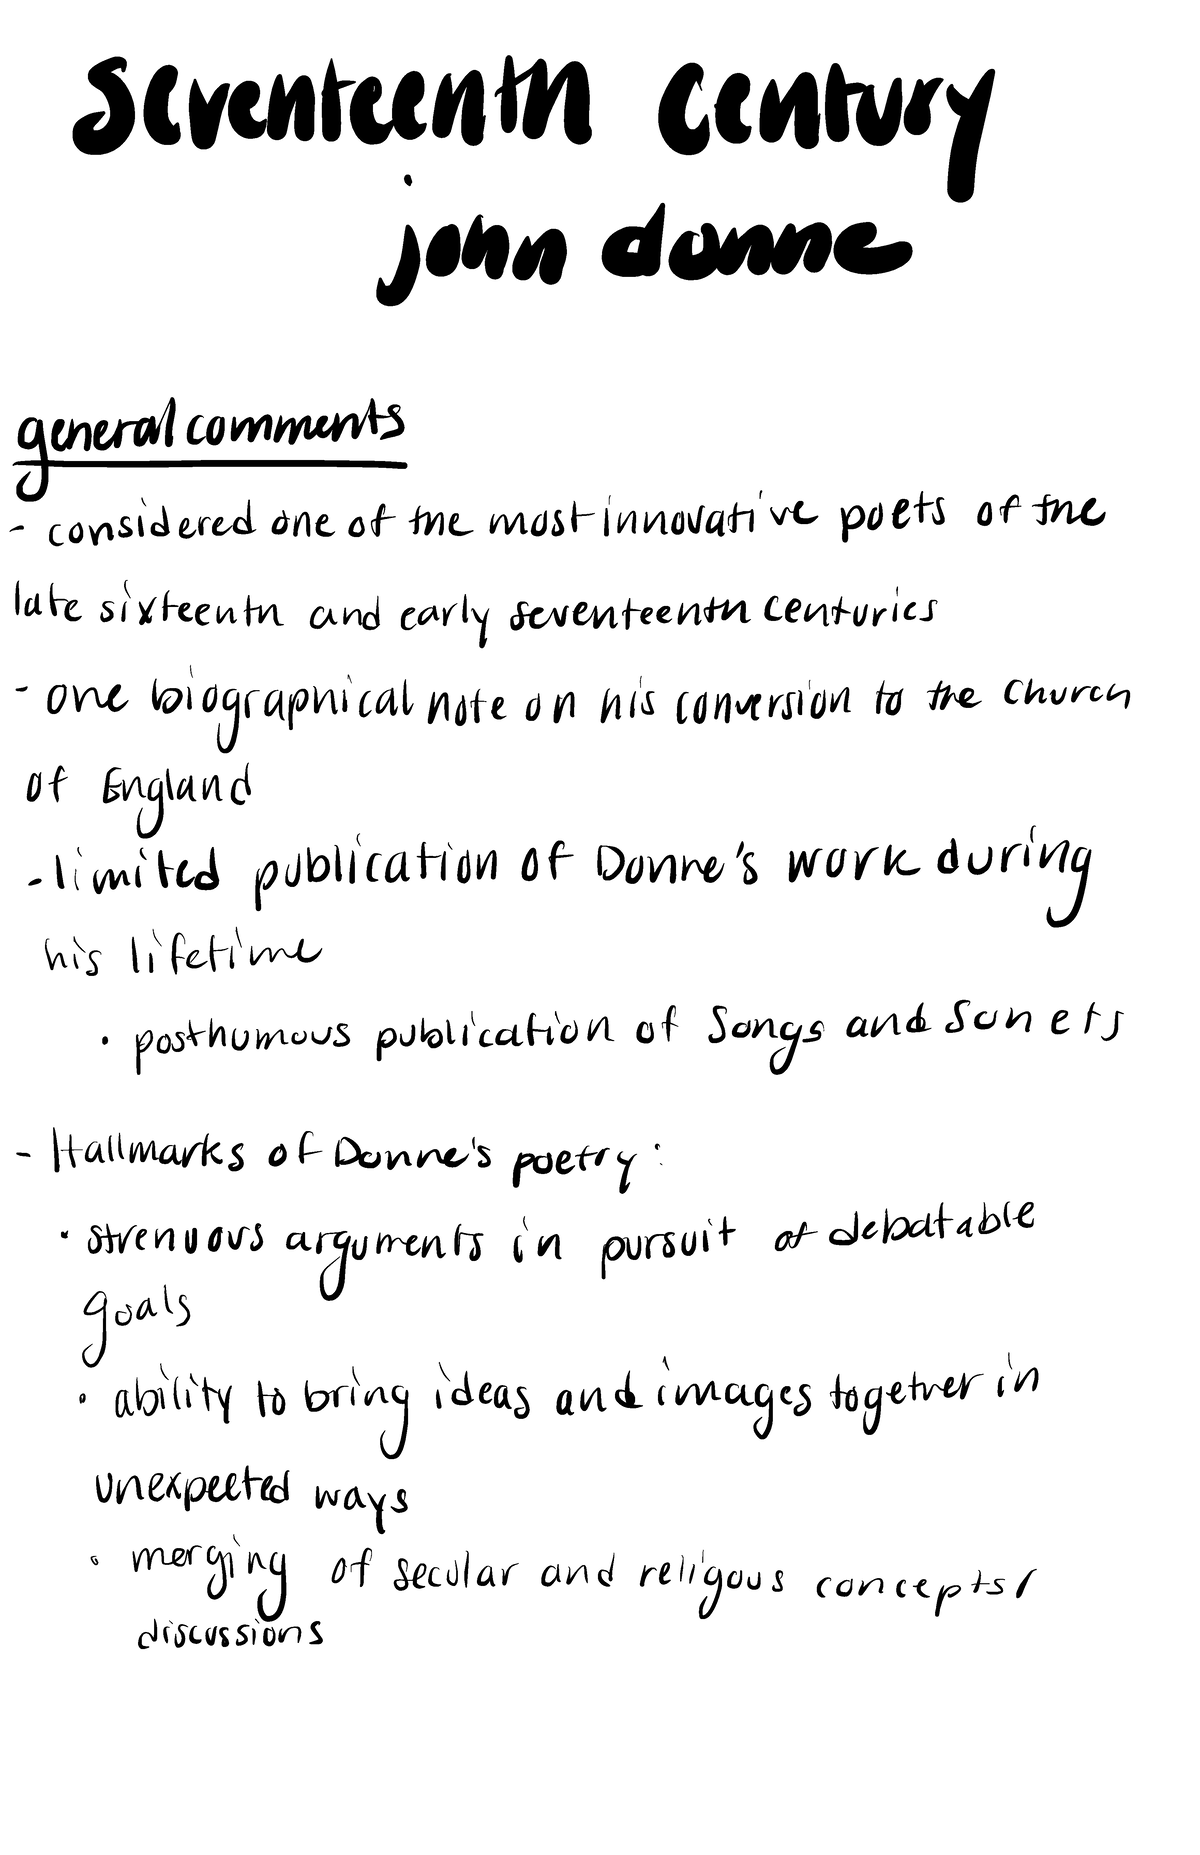 Seventeenth Century
john donne
general comments
- considered one of the most innovative poets of the
late sixteenth and early seventeenth centuries
- one biographical note on his conversion to the Church
of England
- limited publication of Donne's work during
his lifetime
• posthumous publication of Songs and Sonets
- Hallmarks of Donne's poetry:
• strenuous arguments in pursuit of debatable
goals
• ability to bring ideas and images together in
unexpected ways
• merging of secular and religous concepts/
discussions